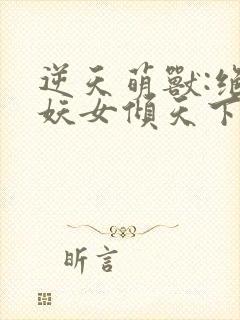 逆天萌獸:絕
妖女傾天下
昕言